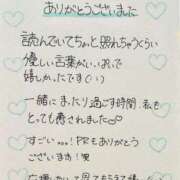 ありがとうございました
読んでいてちょっと照れちゃうくらい
優しい言葉がいっぱいで
嬉しかったです(^^)
一緒にまったり過ごす時間、私も
とっても癒されました♡
すごい...!PRもありがとう
ございます!
応援したいって思ってもらえて